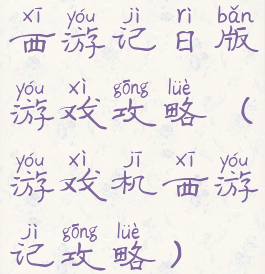 xī yóu jì rì bǎn
西游记日版
yóu xì gōng lüè
游戏攻略（
yóu xì jī xī yóu
游戏机西游
jì gōng lüè
记攻略）